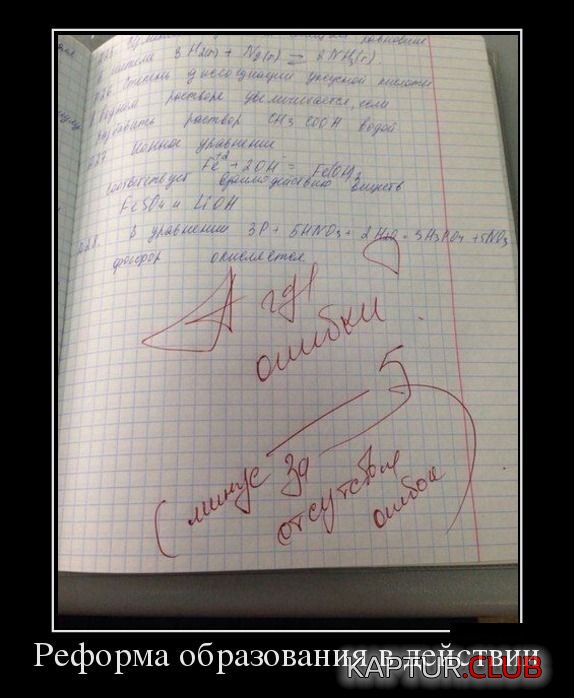 3 H2(г) + N2(г) ⇄ 2 NH3(г).
Степень диссоциации уксусной кислоты
в водном растворе увеличивается, если
разбавить раствор CH3COOH водой
027. Ионное уравнение
Fe+2 + 2OH- = Fe(OH)2
соответствует взаимодействию веществ
FeSO4 и LiOH
028. В уравнении 3P + 5HNO3 + 2H2O = 3H3PO4 + 5NO
фосфор окисляется
А где
ошибки
5
(минус за
отсутствие
ошибок
Реформа образования в действии
KAPTUR.CLUB